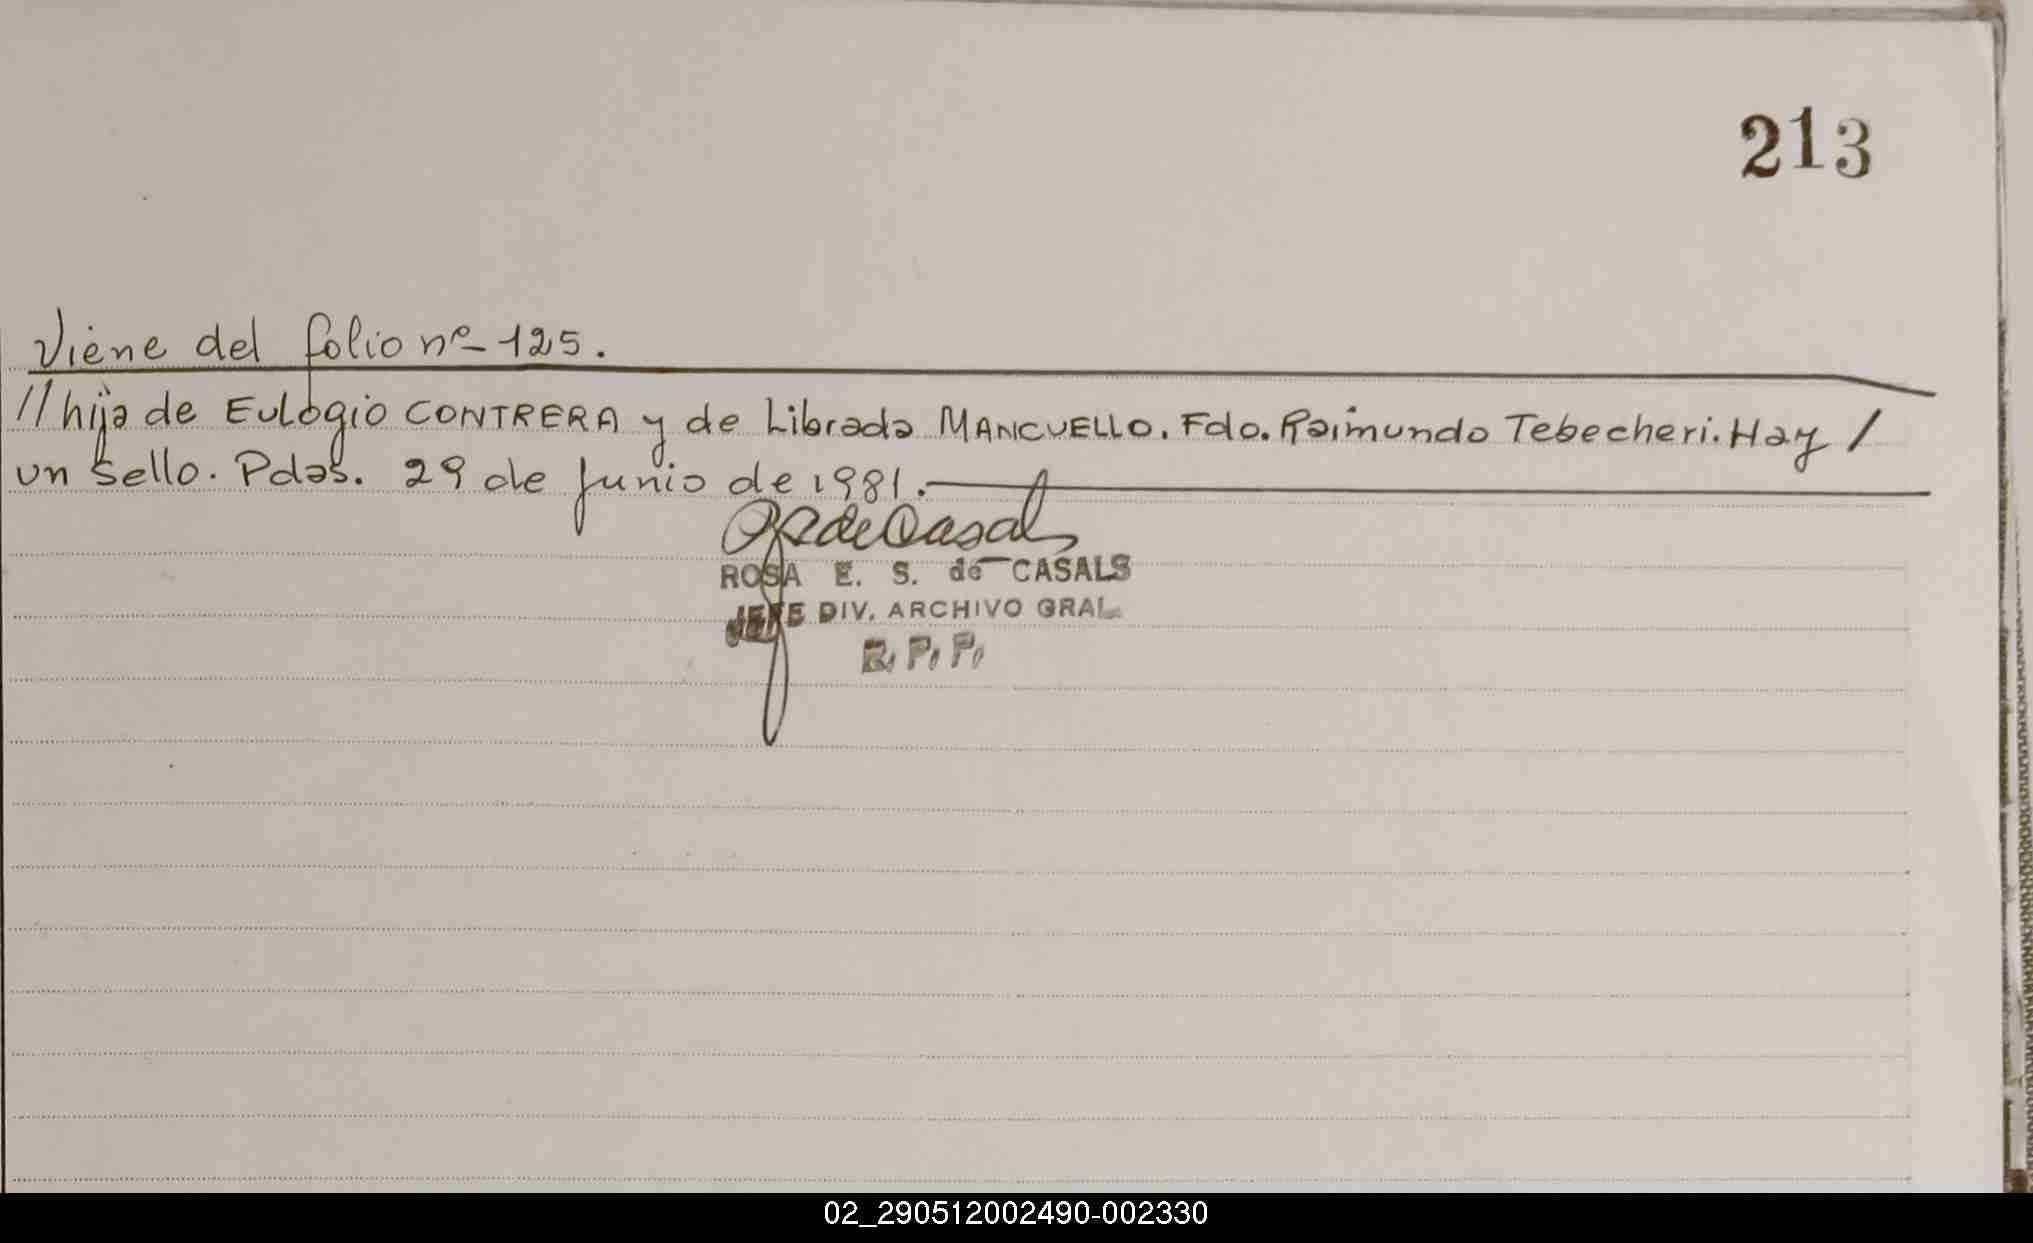 213
Viene del folio nº 125.
//hija de Eulogio CONTRERA y de Librada MANCUELLO. Fdo. Raimundo Tebecheri. Hay /
un sello. Pdas. 29 de Junio de 1981.
ROSA E. S. de CASALS
JEFE DIV. ARCHIVO GRAL.
R. P. P.
02_290512002490-002330